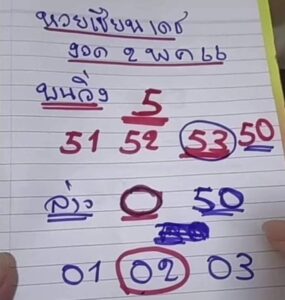 หวยเซียนเดช
งวด ๒ พค ๖๖
บนวิ่ง 5
51 52 53 50
ล่าง 0 50
01 02 03